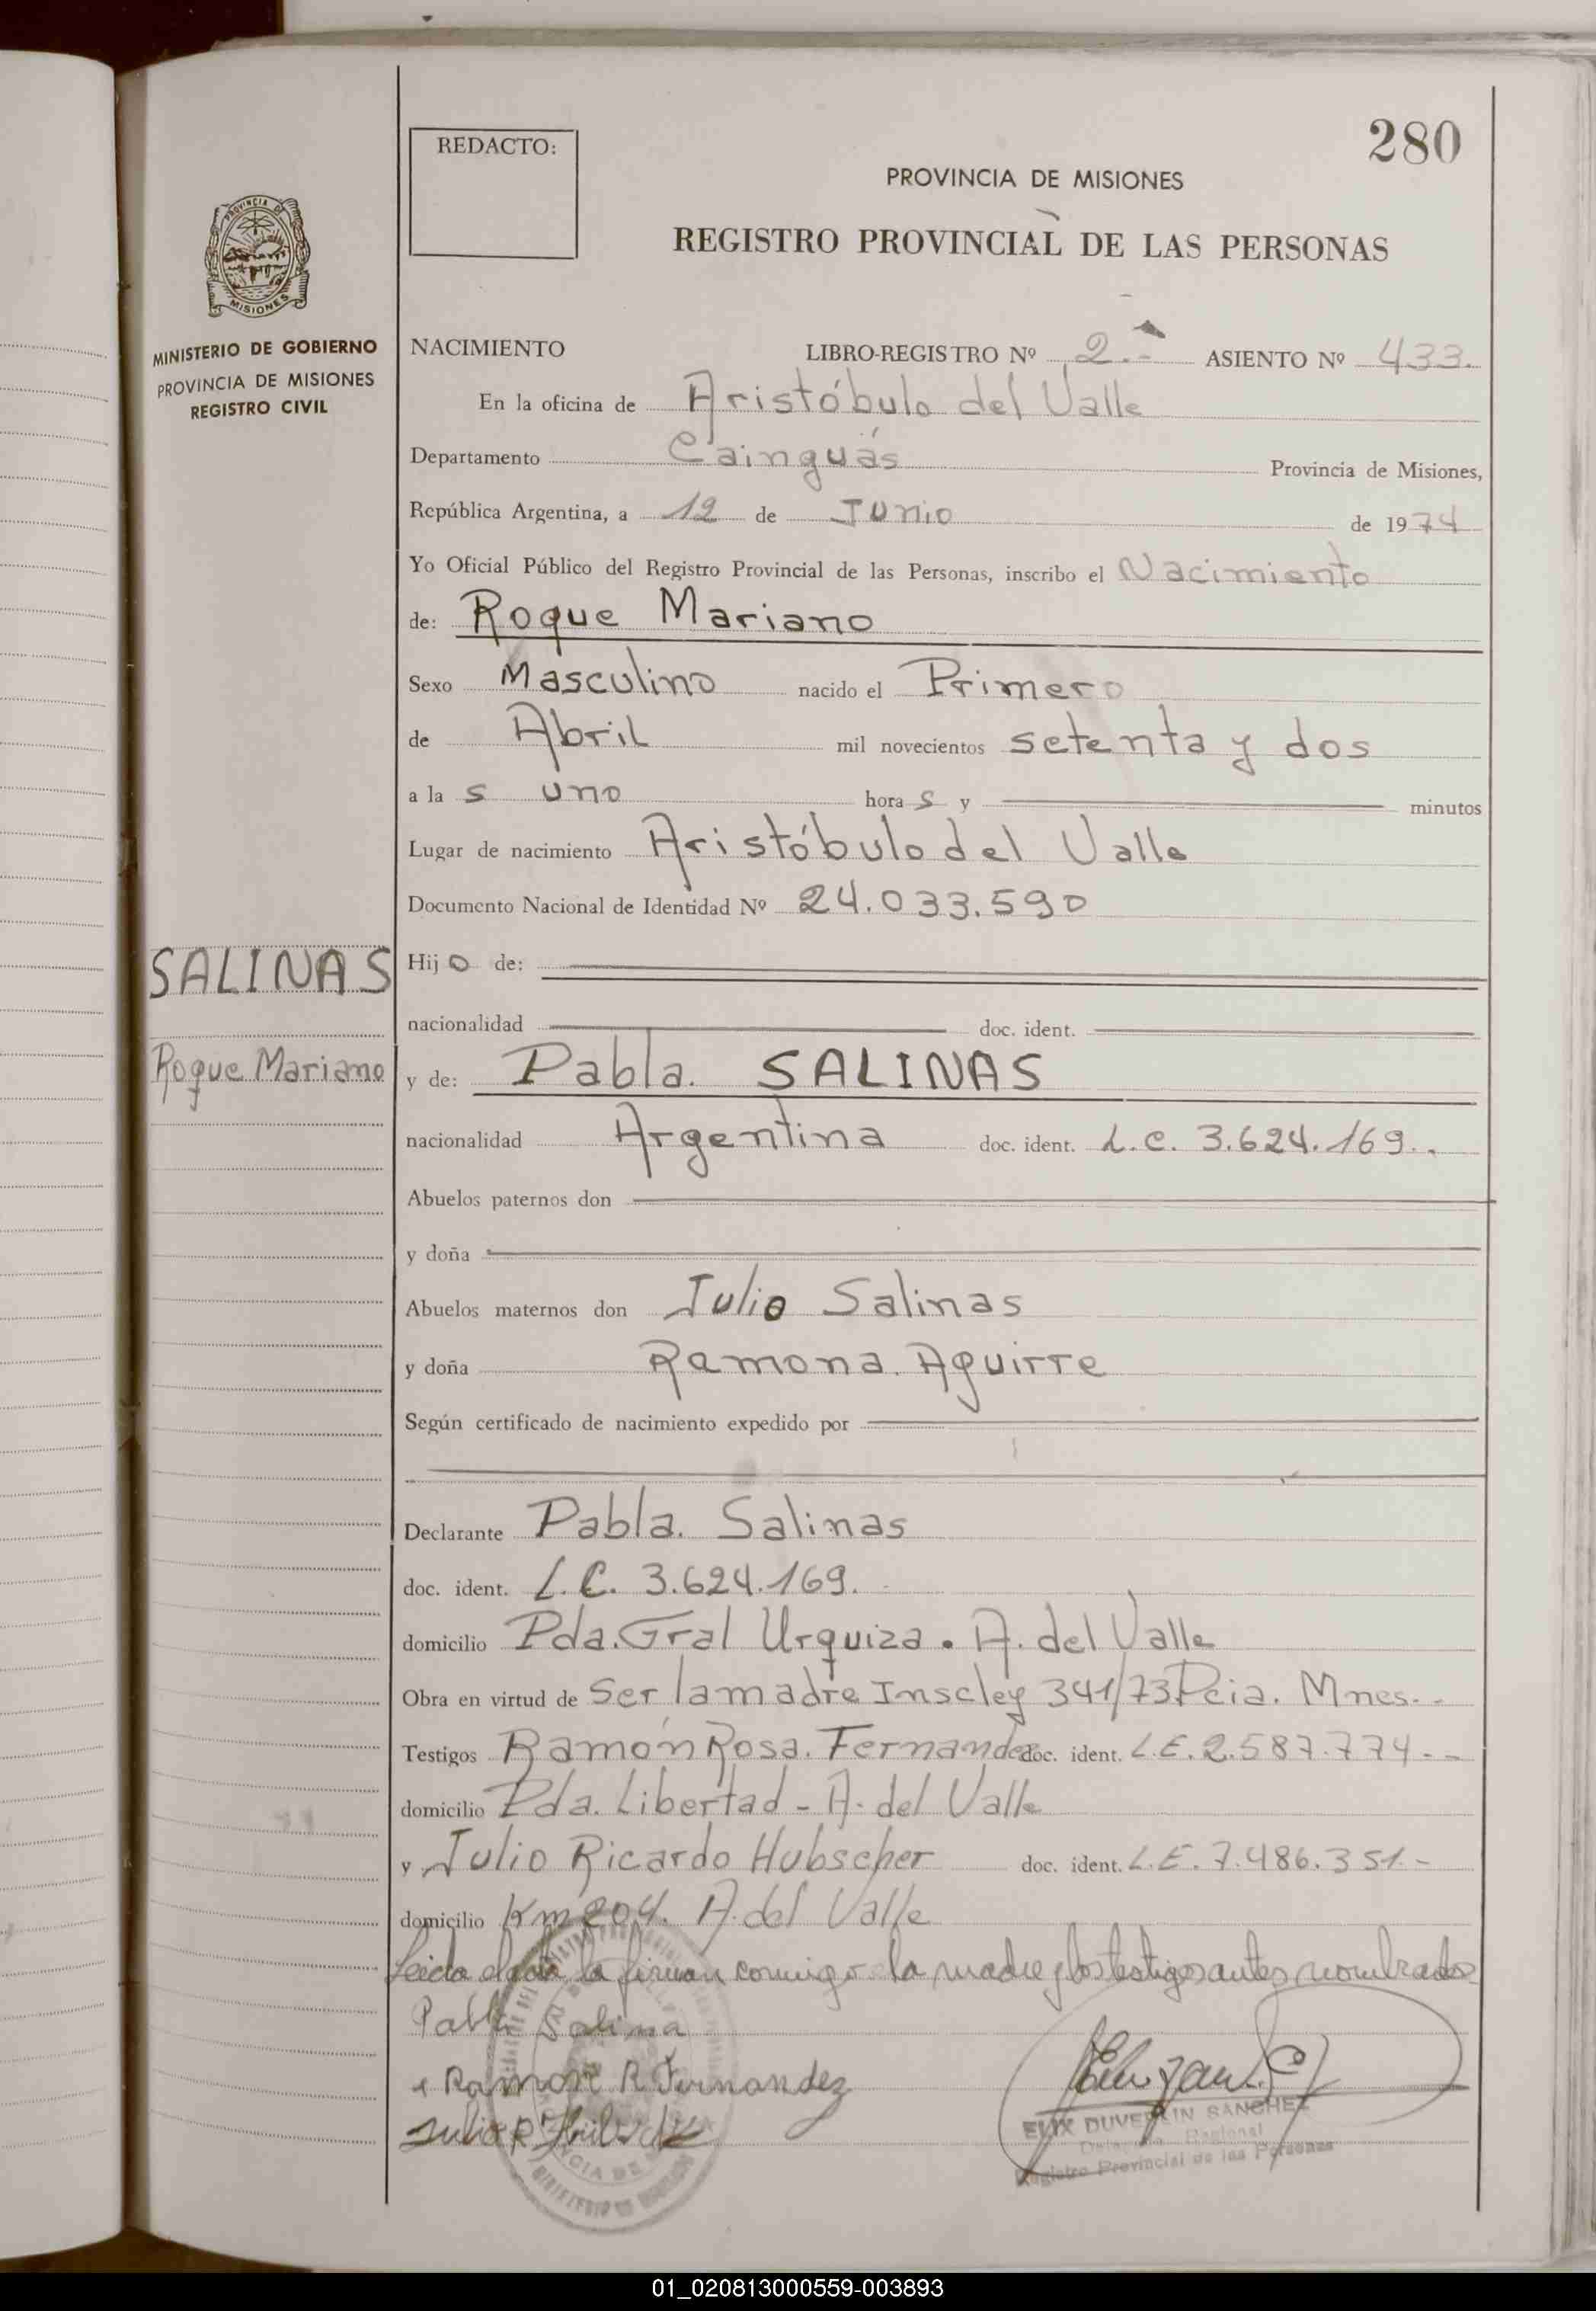 280
REDACTO:
PROVINCIA DE MISIONES
REGISTRO PROVINCIAL DE LAS PERSONAS
PROVINCIA DE
MISIONES
MINISTERIO DE GOBIERNO
PROVINCIA DE MISIONES
REGISTRO CIVIL
NACIMIENTO LIBRO-REGISTRO Nº 2.- ASIENTO Nº 433.
En la oficina de Aristóbulo del Valle
Departamento Cainguás Provincia de Misiones,
República Argentina, a 12 de Junio de 1974
Yo Oficial Público del Registro Provincial de las Personas, inscribo el Nacimiento
de: Roque Mariano
Sexo Masculino nacido el Primero
de Abril mil novecientos setenta y dos
a la s uno hora s y minutos
Lugar de nacimiento Aristóbulo del Valle
Documento Nacional de Identidad Nº 24.033.590
SALINAS
Roque Mariano
Hij o de:
nacionalidad doc. ident.
y de: Pabla. SALINAS
nacionalidad Argentina doc. ident. L.C. 3.624.169..
Abuelos paternos don
y doña
Abuelos maternos don Julio Salinas
y doña Ramona. Aguirre
Según certificado de nacimiento expedido por
Declarante Pabla. Salinas
doc. ident. L.C. 3.624.169.
domicilio Pda. Gral Urquiza. A. del Valle
Obra en virtud de Ser la madre Inscley 341/73 Pcia. Mnes.-
Testigos Ramón Rosa. Fernandez doc. ident. L.E. 2.587.774.--
domicilio Pda. Libertad - A. del Valle
y Julio Ricardo Hubscher doc. ident. L.E. 7.486.351.-
domicilio Km 204. A. del Valle
Leida el acta la firman conmigo la madre y los testigos antes nombrados
Pabla Salina
Ramon R Fernandez
Julio R
ELIX DUVERLIN SANCHEZ
Regional
Registro Provincial de las Personas
01_020813000559-003893